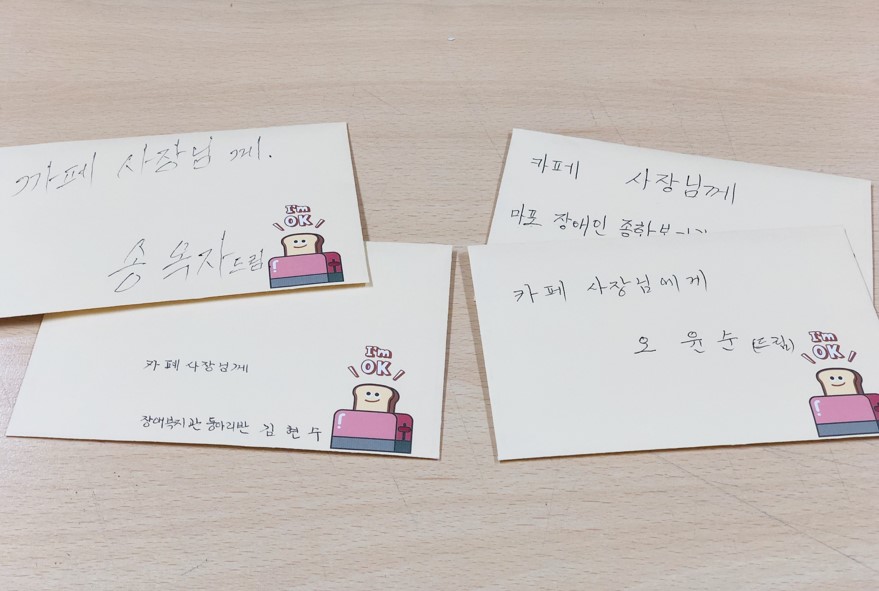 까페 사장님 께.
송옥자드림
I'm
OK
카페 사장님께
마포 장애인 종합
카페 사장님께
장애복지관 동아리반 김 현 수
I'm
OK
카페 사장님에게
오 윤 순 (드림)
I'm
OK